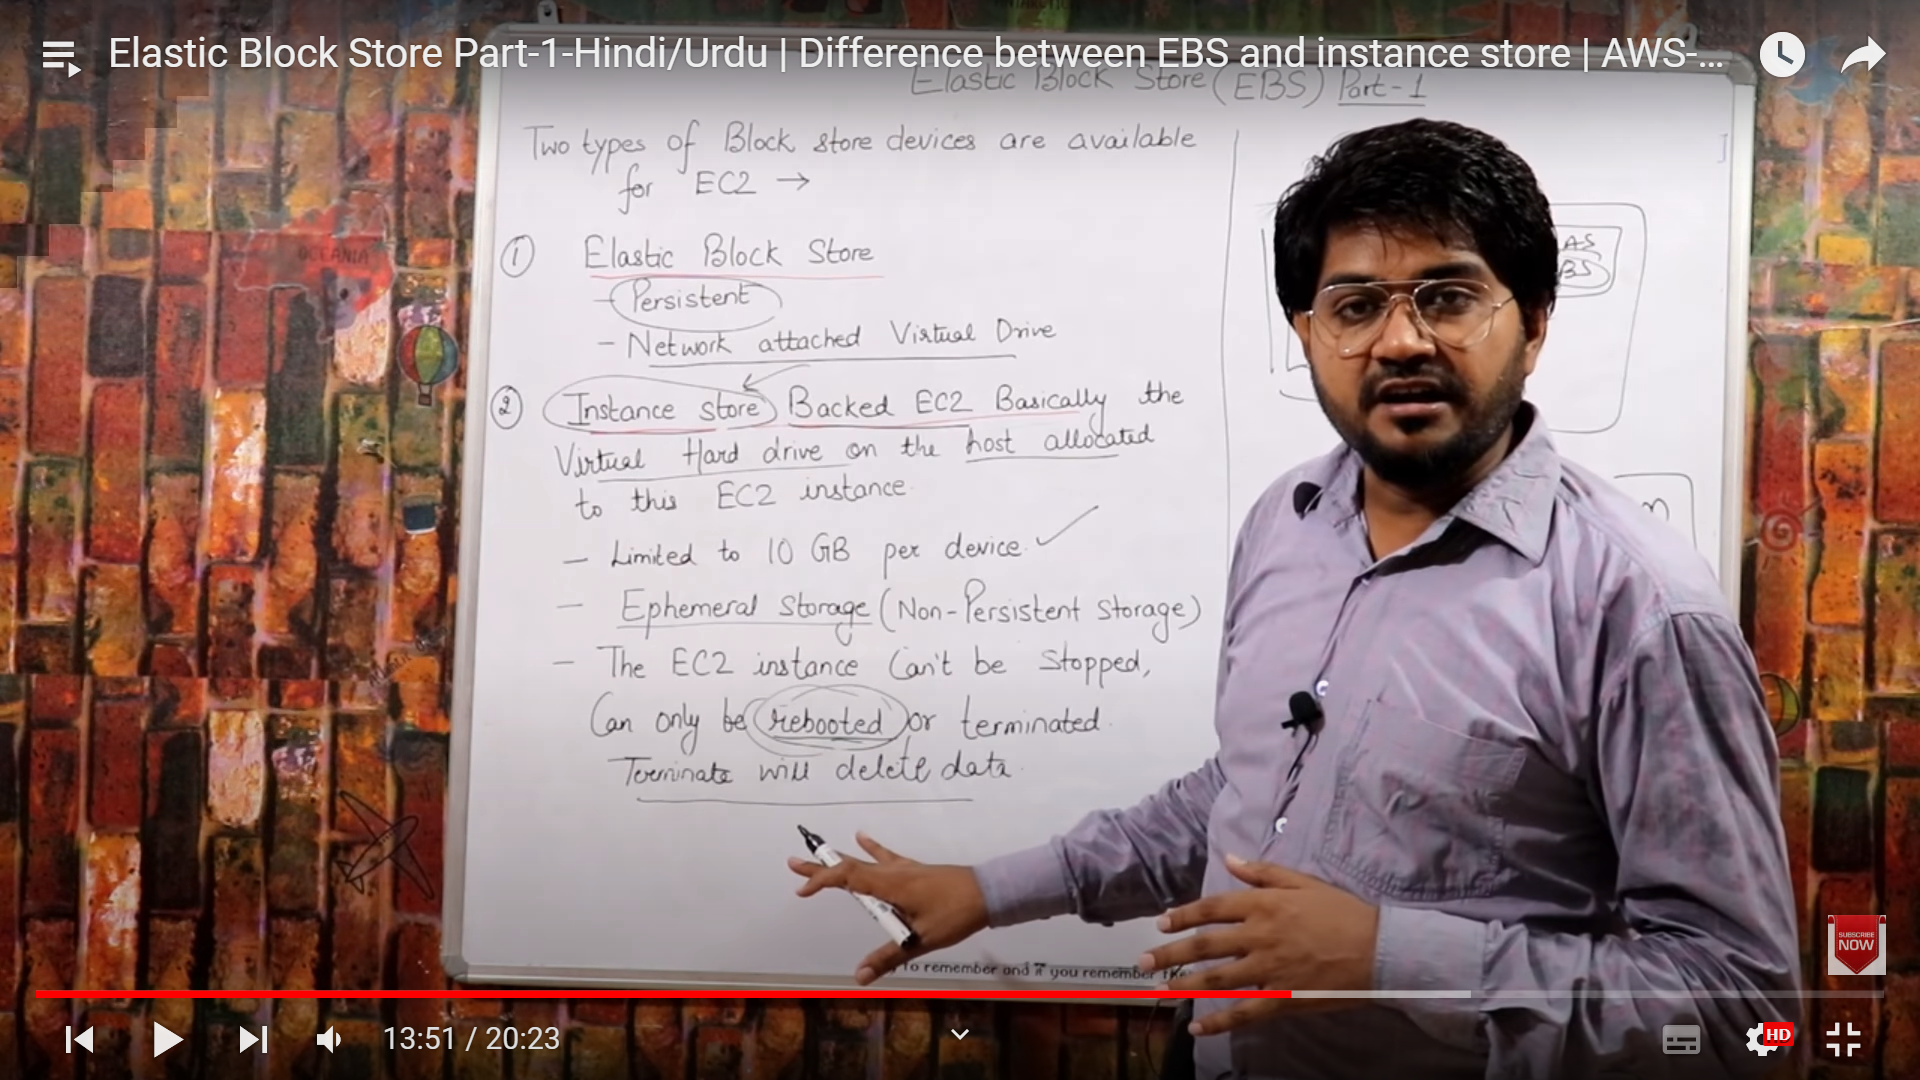 Elastic Block Store Part-1-Hindi/Urdu | Difference between EBS and instance store | AWS-...
Elastic Block Store (EBS) Part-1
Two types of Block store devices are available
for EC2 →
① Elastic Block Store
- Persistent
- Network attached Virtual Drive
② Instance store Backed EC2 Basically the
Virtual Hard drive on the host allocated
to this EC2 instance.
- Limited to 10 GB per device.
- Ephemeral Storage (Non-Persistent Storage)
- The EC2 instance Can't be Stopped,
Can only be rebooted or terminated.
Terminate will delete data.
AS
BS
OCEANIA
To remember and if you remember
SUBSCRIBE
NOW
13:51 / 20:23
HD